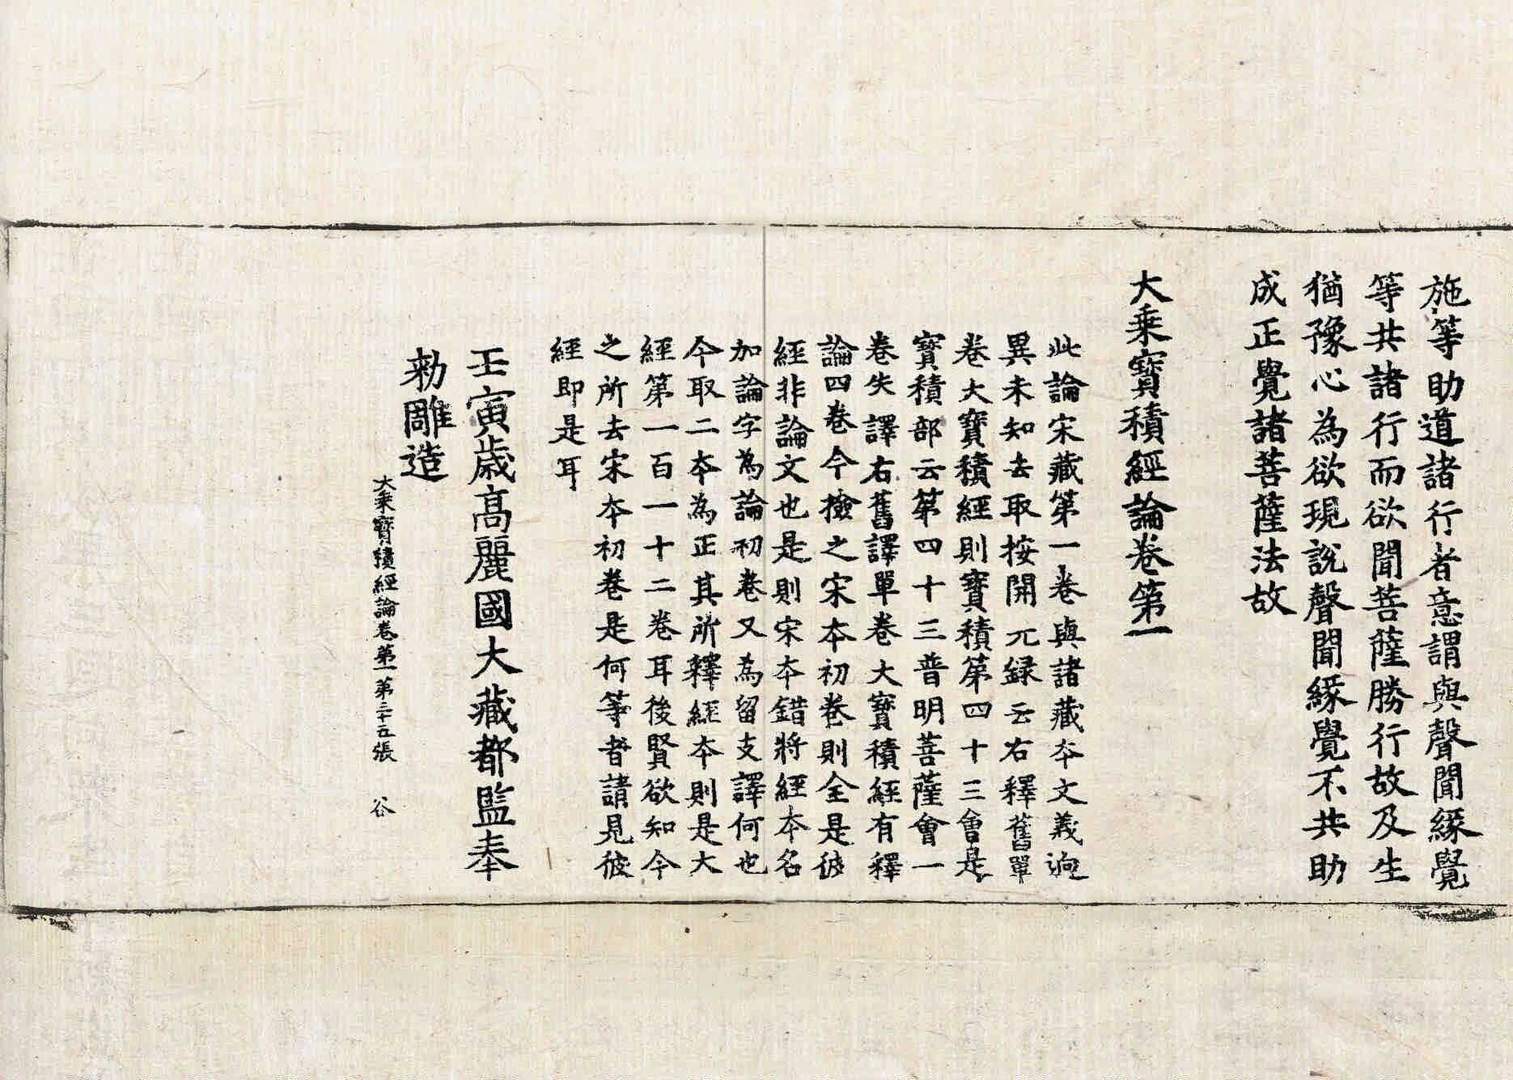 施等助道諸行者意謂與聲聞緣覺
等共諸行而欲聞菩薩勝行故及生
猶豫心為欲現說聲聞緣覺不共助
成正覺諸菩薩法故
大乘寶積經論卷第一
此論宋藏第一卷與諸藏夲文義逈
異未知去取按開元録云右釋舊單
卷大寶積經則寶積第四十三會是
寶積部云第四十三普明菩薩會一
卷失譯右舊譯單卷大寶積經有釋
論四卷今撿之宋夲初卷則全是彼
經非論文也是則宋夲錯將經夲名
加論字為論初卷又為留支譯何也
今取二夲為正其所釋經夲則是大
經第一百一十二卷耳後賢欲知今
之所去宋夲初卷是何等者請見彼
經即是耳
壬寅歳高麗國大藏都監奉
勑雕造
大乘寶積經論卷第一 第三十五張 谷